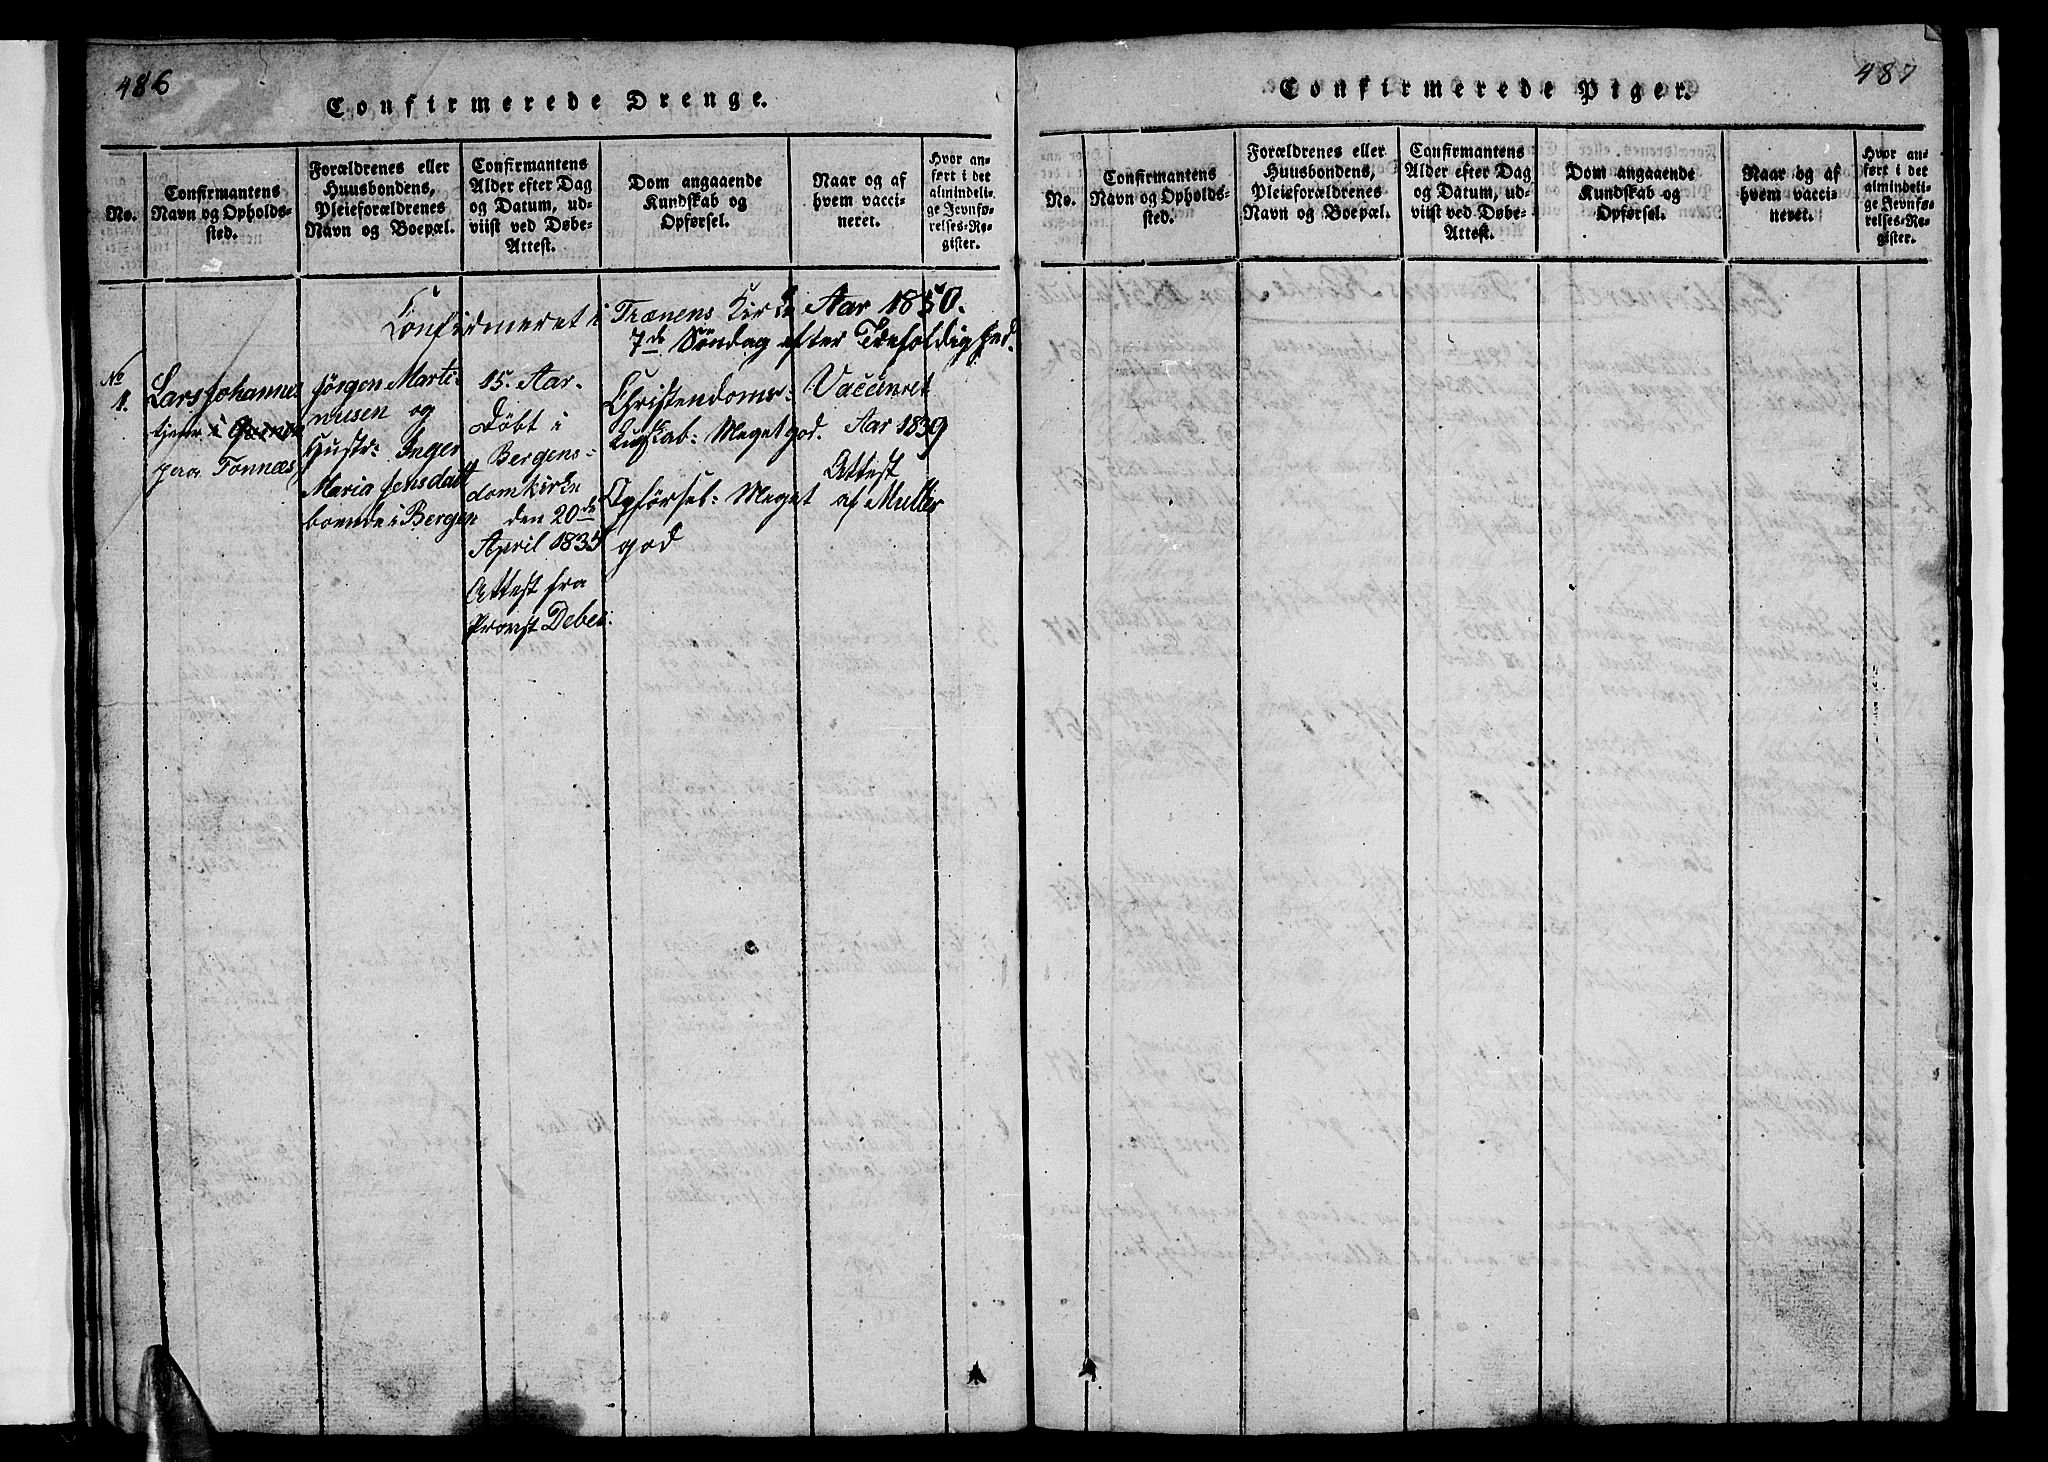 486
Confirmerede Drenge.
No.
Confirmantens
Navn og Opholds-
sted.
Forældrenes eller
Huusbondens,
Pleieforældrenes
Navn og Boepæl.
Confirmantens
Alder efter Dag
og Datum, ud-
viist ved Døbe-
Attest.
Dom angaaende
Kundskab og
Opførsel.
Naar og af
hvem vacci-
neret.
Hvor an-
ført i det
almindeli-
ge Jevnfø-
relses-Re-
gister.
Confirmeret i Trænens Kirke Aar 1850.
7de Söndag efter Trefoldighed.
No
1.
Lars Johannes
tjener i
paa Tonnæs
Jörgen Marti-
nusen og
Hustr: Inger
Maria Jensdatt
boende i Bergen
15. Aar.
Döbt i
Bergens-
domkirke
den 20de
April 1835
Attest fra
Provst Debes:
Christendoms-
Kuskab: Meget god.
Opförsel: Meget
god
Vaccineret
Aar 1839
Attest
af Muller
487
Confirmerede Piger.
No.
Confirmantens
Navn og Opholds-
sted.
Forældrenes eller
Huusbondens,
Pleieforældrenes
Navn og Boepæl.
Confirmantens
Alder efter Dag
og Datum, ud-
viist ved Døbe-
Attest.
Dom angaaende
Kundskab og
Opførsel.
Naar og af
hvem vacci-
neret.
Hvor an-
ført i det
almindeli-
ge Jevnfø-
relses-Re-
gister.